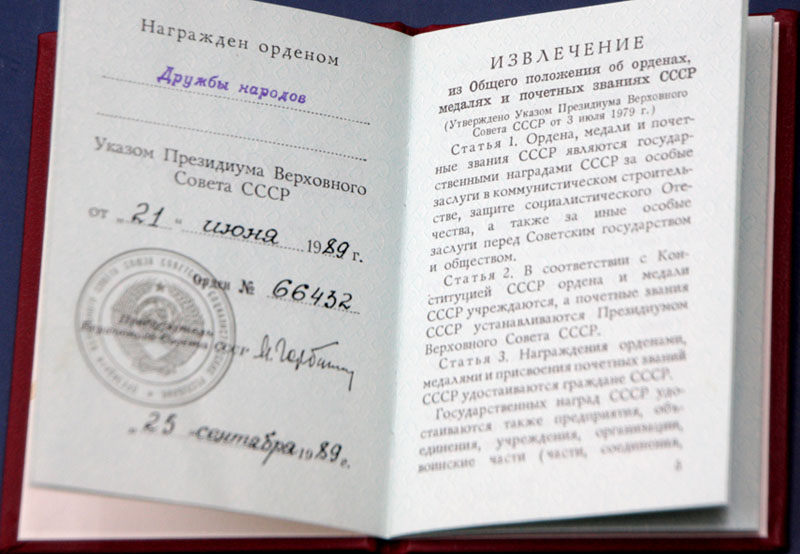 Награжден орденом
Дружбы народов
Указом Президиума Верховного
Совета СССР
от „21“ июня 1989 г.
Орден № 66432
Председатель
Верховного Совета СССР М. Горбачев
„25 сентября 1989 г.
ИЗВЛЕЧЕНИЕ
из Общего положения об орденах,
медалях и почетных званиях СССР
(Утверждено Указом Президиума Верховного
Совета СССР от 3 июля 1979 г.)
Статья 1. Ордена, медали и почет-
ные звания СССР являются государ-
ственными наградами СССР за особые
заслуги в коммунистическом строитель-
стве, защите социалистического Оте-
чества, а также за иные особые
заслуги перед Советским государством
и обществом.
Статья 2. В соответствии с Кон-
ституцией СССР ордена и медали
СССР учреждаются, а почетные звания
СССР устанавливаются Президиумом
Верховного Совета СССР.
Статья 3. Награждения орденами,
медалями и присвоения почетных званий
СССР удостаиваются граждане СССР.
Государственных наград СССР удо-
стаиваются также предприятия, объ-
единения, учреждения, организации,
воинские части (части, соединения,